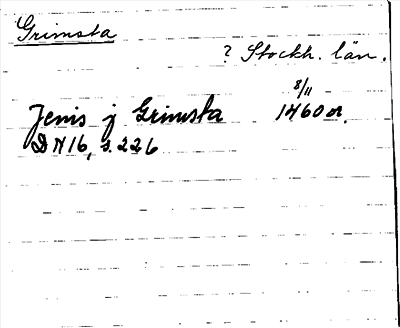 Grimsta
? Stockh. län.
8/11
Jenis j Grimsta 1460 or.
DN 16, s. 226